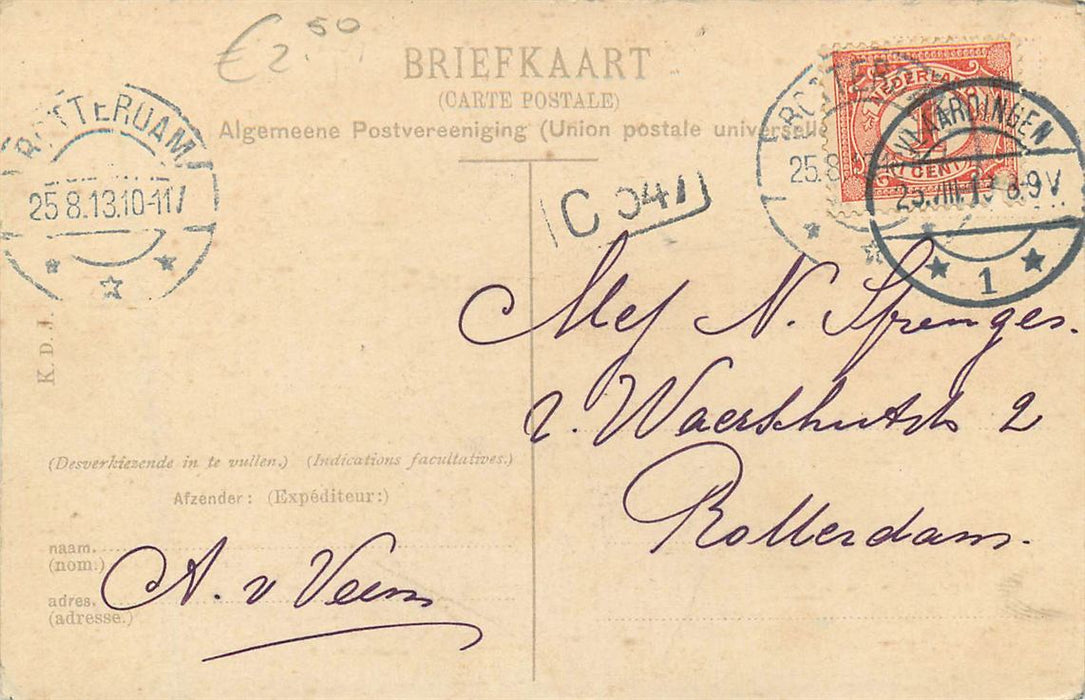 € 2.50
BRIEFKAART
(CARTE POSTALE)
Algemeene Postvereeniging (Union postale universelle
ROTTERDAM
25 8.13.10-11V
ROTTER
25.8
NEDERLAND
1
1 CENT
VLAARDINGEN
25.VIII.13 8-9V
1
K. D. J.
Mej N. Sprenger.
v. Waerschutstr 2
Rotterdam.
(Desverkiezende in te vullen.) (Indications facultatives.)
Afzender: (Expéditeur:)
naam.
(nom.)
A. v Veen
adres.
(adresse.)